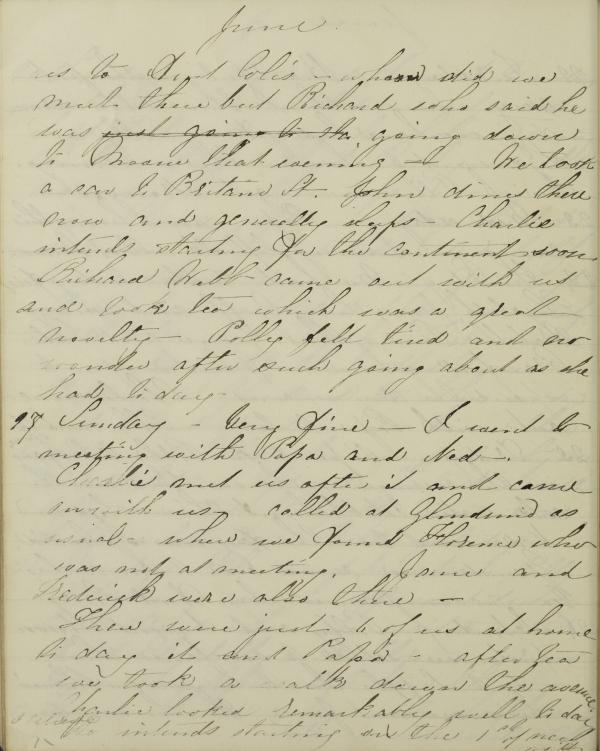 June.
us to Aunt Coli's - whom did we
meet there but Richard who said he
was just going to sta going down
to Moone that evening - We took
a car to Britain St. John dines there
now and generally sleeps - Charlie
intends starting for the continent soon
Richard Webb came out with us
and took tea which was a great
novelty - Polly felt tired and no
wonder after such going about as she
had to day -
Sunday - Very fine - I went to
meeting with Papa and Ned -.
Charlie met us after it and came
on with us - called at Glendruid as
usual - where we found Florence who
was not at meeting. Jane and
Frederick were also there -
There were just 6 of us at home
to day it and Papa - after tea
we took a walk down the avenue.
Charlie looked remarkably well to day
he intends starting on the 1st of next